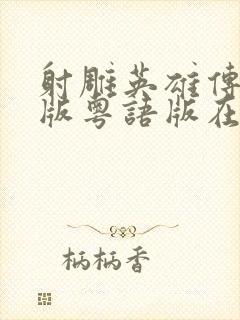 射雕英雄傳
版粵語版在
柄柄香